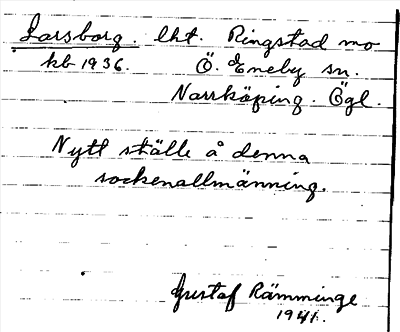 Larsborg. lht. Ringstad mo
kb 1936. Ö. Eneby sn.
Norrköping. Ögl.
Nytt ställe å denna
sockenallmänning.
Gustaf Rämminge
1941.